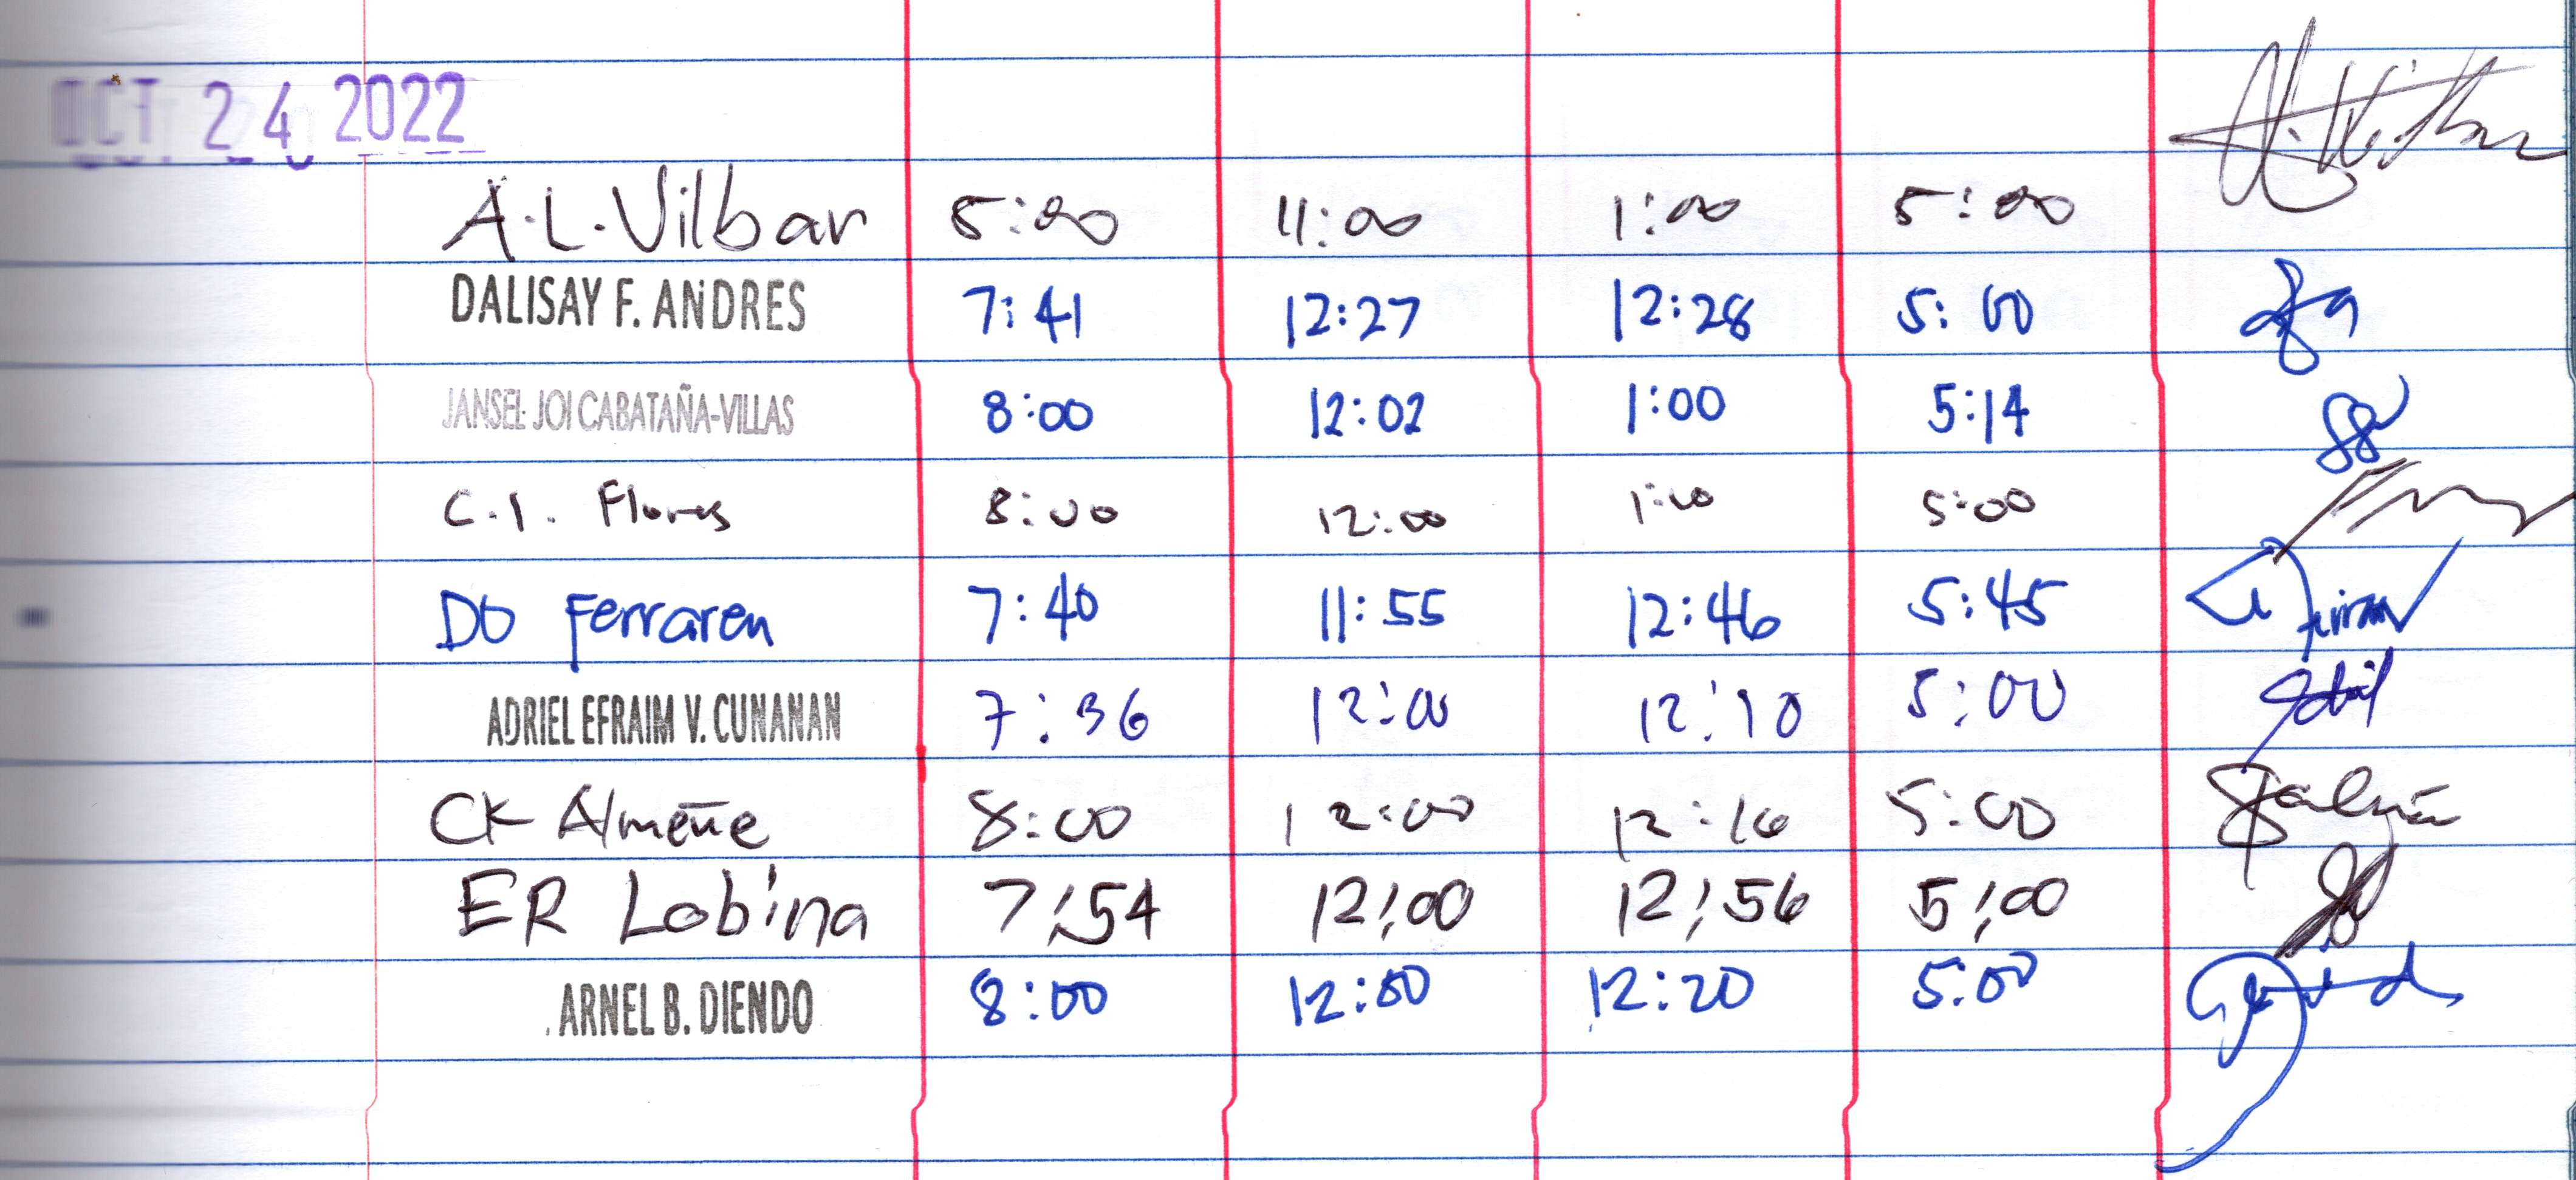 OCT 24 2022
A.L. Vilbar 5:00 11:00 1:00 5:00
DALISAY F. ANDRES 7:41 12:27 12:28 5:00
JANSEL JOI CABATAÑA-VILLAS 8:00 12:02 1:00 5:14
C.I. Flores 8:00 12:00 1:00 5:00
DO Ferraren 7:40 11:55 12:46 5:45
ADRIEL EFRAIM V. CUNANAN 7:36 12:00 12:10 5:00
CK Almeñe 8:00 12:00 12:16 5:00
ER Lobina 7:54 12:00 12:56 5:00
ARNEL B. DIENDO 8:00 12:00 12:20 5:00